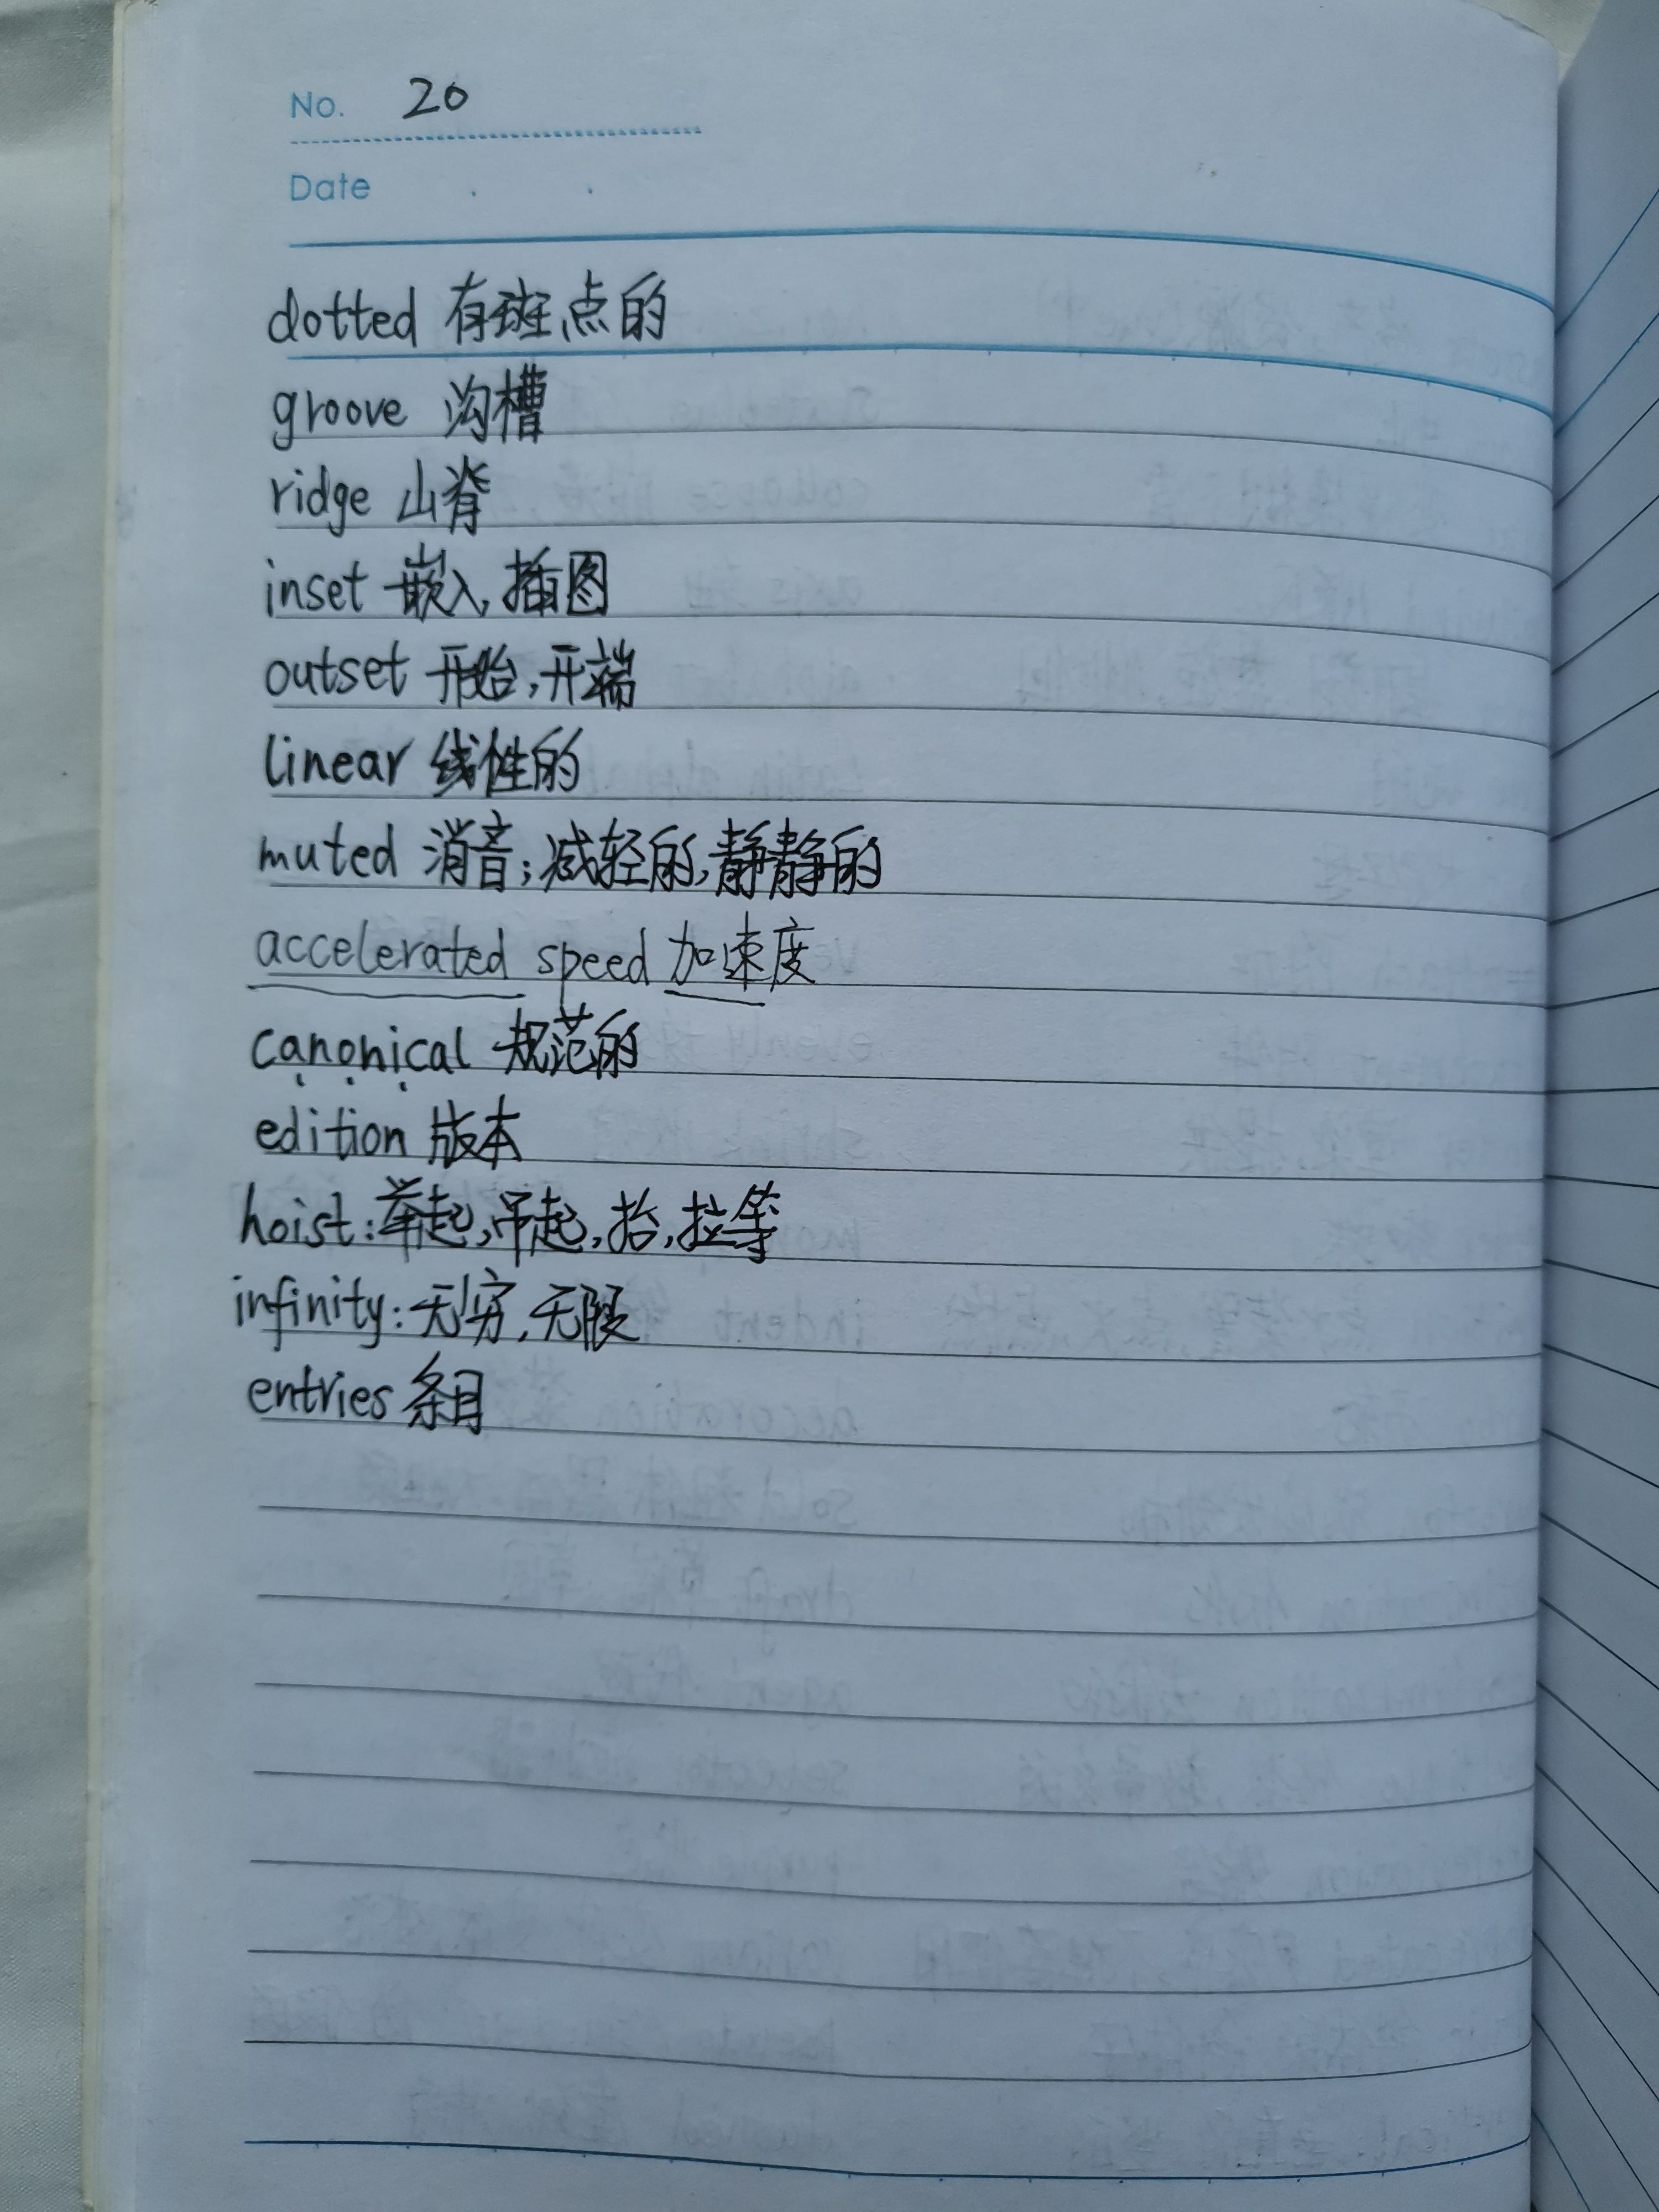 No. 20
Date
dotted 有斑点的
groove 沟槽
ridge 山脊
inset 嵌入,插图
outset 开始,开端
linear 线性的
muted 消音;减轻的,静静的
accelerated speed 加速度
canonical 规范的
edition 版本
hoist:举起,吊起,抬,拉等
infinity:无穷,无限
entries 条目